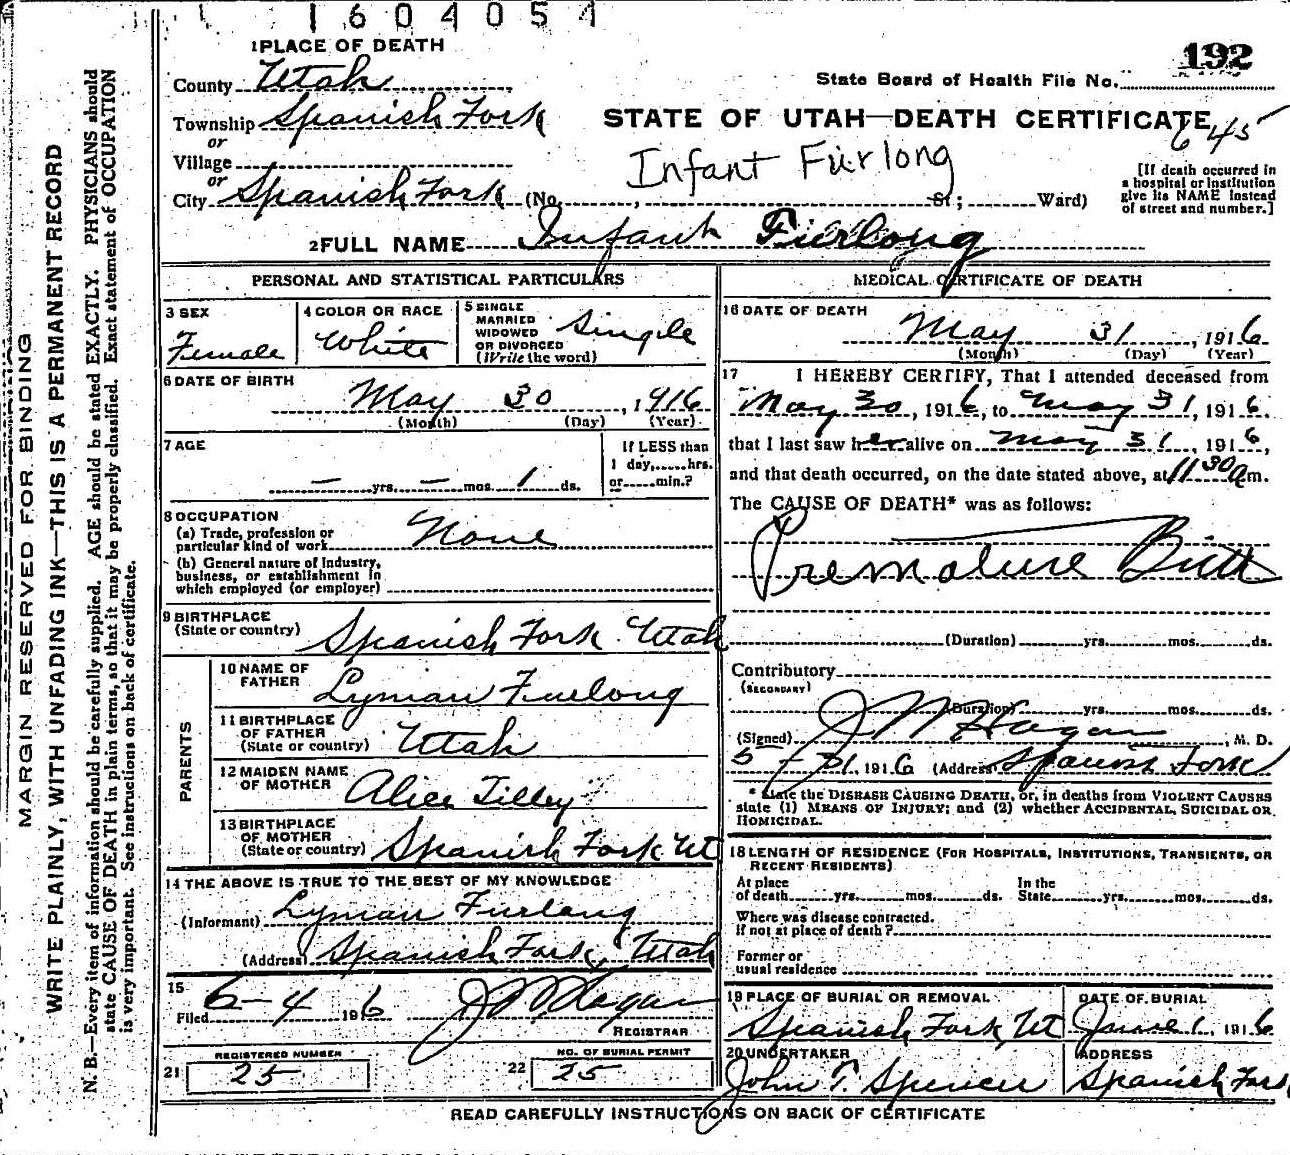 1604054
1 PLACE OF DEATH
192
County Utah
State Board of Health File No.
Township Spanish Fork
STATE OF UTAH—DEATH CERTIFICATE
645
or
Village
Infant Furlong
or
City Spanish Fork (No. , St; Ward)
[If death occurred in
a hospital or institution
give its NAME instead
of street and number.]
2 FULL NAME Infant Furlong
PERSONAL AND STATISTICAL PARTICULARS
3 SEX
Female
4 COLOR OR RACE
White
5 SINGLE
MARRIED
WIDOWED
OR DIVORCED
(Write the word)
Single
6 DATE OF BIRTH
May 30, 1916
(Month) (Day) (Year)
7 AGE
— yrs. — mos. 1 ds.
If LESS than
1 day, hrs.
or min.?
8 OCCUPATION
(a) Trade, profession or
particular kind of work None
(b) General nature of industry,
business, or establishment in
which employed (or employer)
9 BIRTHPLACE
(State or country) Spanish Fork Utah
PARENTS
10 NAME OF
FATHER Lyman Furlong
11 BIRTHPLACE
OF FATHER
(State or country) Utah
12 MAIDEN NAME
OF MOTHER Alice Tilley
13 BIRTHPLACE
OF MOTHER
(State or country) Spanish Fork Ut
14 THE ABOVE IS TRUE TO THE BEST OF MY KNOWLEDGE
(Informant) Lyman Furlong
(Address) Spanish Fork, Utah
15
Filed 6-4 1916 J W Hagan
REGISTRAR
REGISTERED NUMBER
21 25
NO. OF BURIAL PERMIT
22 25
MEDICAL CERTIFICATE OF DEATH
16 DATE OF DEATH
May 31, 1916
(Month) (Day) (Year)
17 I HEREBY CERTIFY, That I attended deceased from
May 30, 1916, to May 31, 1916.
that I last saw her alive on May 31, 1916,
and that death occurred, on the date stated above, at 11 30 a m.
The CAUSE OF DEATH* was as follows:
Premature Birth
(Duration) yrs. mos. ds.
Contributory
(SECONDARY)
(Duration) yrs. mos. ds.
(Signed) J W Hagan, M. D.
5-31, 1916 (Address) Spanish Fork
* State the DISEASE CAUSING DEATH, or, in deaths from VIOLENT CAUSES
state (1) MEANS OF INJURY; and (2) whether ACCIDENTAL, SUICIDAL OR
HOMICIDAL.
18 LENGTH OF RESIDENCE (FOR HOSPITALS, INSTITUTIONS, TRANSIENTS, OR
RECENT RESIDENTS)
At place
of death yrs. mos. ds.
In the
State yrs. mos. ds.
Where was disease contracted.
If not at place of death?
Former or
usual residence
19 PLACE OF BURIAL OR REMOVAL
Spanish Fork, Ut
DATE OF BURIAL
June 1, 1916
20 UNDERTAKER
John T. Spencer
ADDRESS
Spanish Fork
READ CAREFULLY INSTRUCTIONS ON BACK OF CERTIFICATE
MARGIN RESERVED FOR BINDING
WRITE PLAINLY, WITH UNFADING INK—THIS IS A PERMANENT RECORD
N. B.—Every item of information should be carefully supplied. AGE should be stated EXACTLY. PHYSICIANS should
state CAUSE OF DEATH in plain terms, so that it may be properly classified. Exact statement of OCCUPATION
is very important. See instructions on back of certificate.